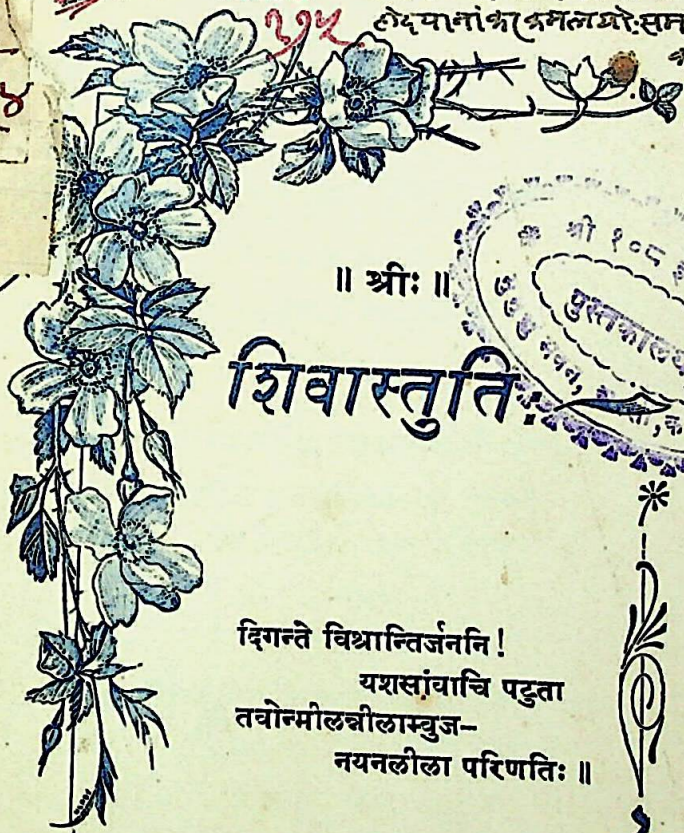 ३७५
४
॥ श्रीः ॥
श्री १०८
पुस्तकालय
भवन,
शिवास्तुतिः
दिगन्ते विश्रान्तिर्जननि!
यशसांवाचि पटुता
तवोन्मीलन्नीलाम्बुज–
नयनलीला परिणतिः ॥